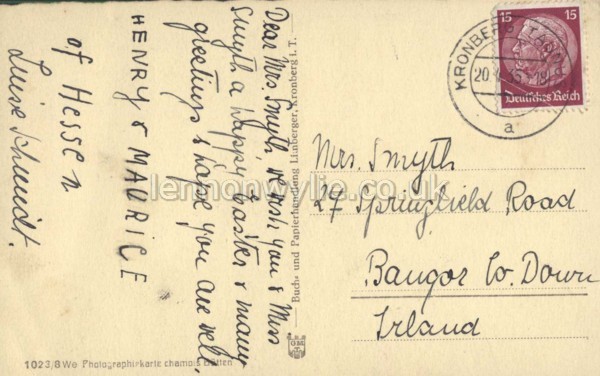 Dear Mrs. Smyth, we wish you & Miss
Smyth a happy Easter & many
greetings & hope you are well.
HENRY & MAURICE
of Hessen
Luise Schmidt.
Buch- und Papierhandlung Limberger, Kronberg i. T.
15 15
Deutsches Reich
KRONBERG (TAUNUS)
a
Mrs. Smyth
27 Springfield Road
Bangor Co. Down
Irland
lennonwylie.co.uk
1023/8 We Photographiekarte chamois Bütten